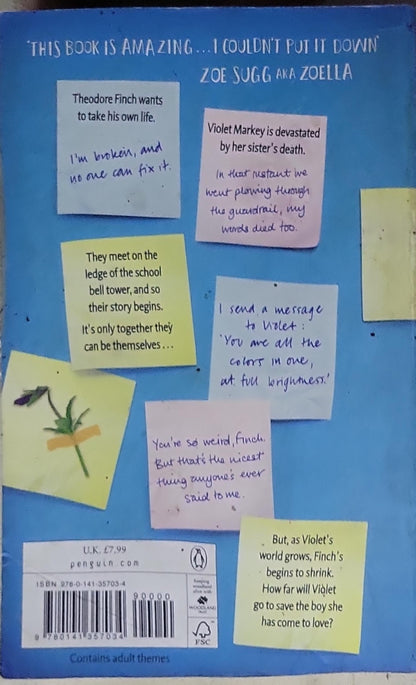 'THIS BOOK IS AMAZING...I COULDN'T PUT IT DOWN'
ZOE SUGG AKA ZOELLA
Theodore Finch wants
to take his own life.
I'm broken, and
no one can fix it.
Violet Markey is devastated
by her sister's death.
In that instant we
went plowing through
the guardrail, my
words died too.
They meet on the
ledge of the school
bell tower, and so
their story begins.
It's only together they
can be themselves...
I send a message
to Violet:
'You are all the
colors in one,
at full brightness.'
You're so weird, Finch.
But that's the nicest
thing anyone's ever
said to me.
But, as Violet's
world grows, Finch's
begins to shrink.
How far will Violet
go to save the boy she
has come to love?
U.K. £7.99
penguin.com
ISBN 978-0-141-35703-4
90000
9 780141 357034
WOODLAND
FSC
Contains adult themes